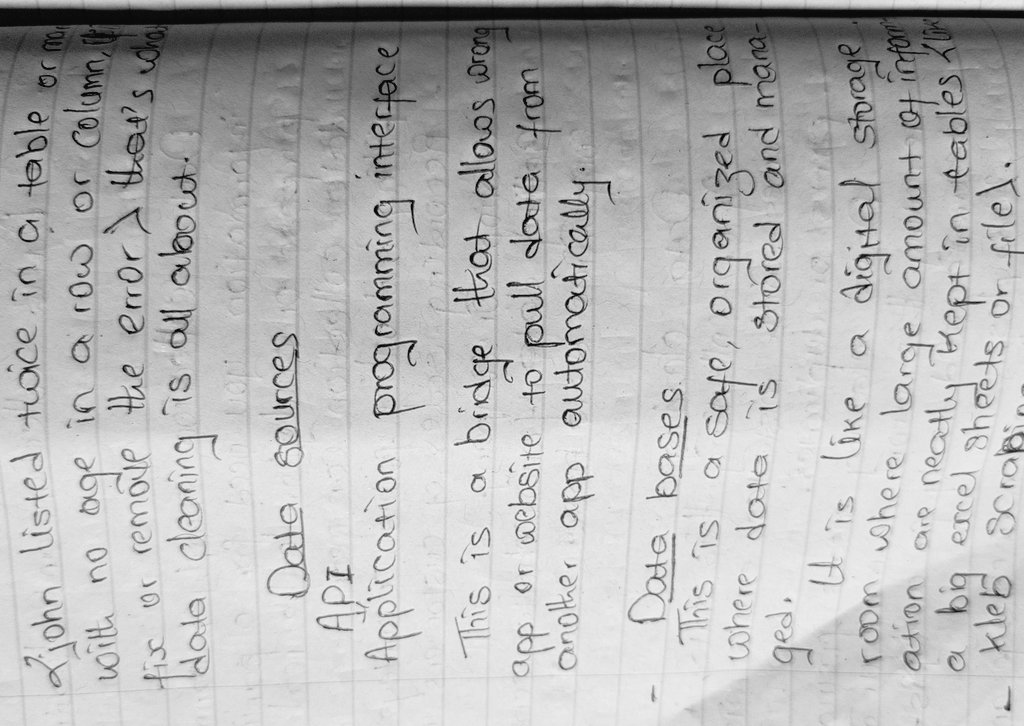 <john listed twice in a table or
with no age in a row or column,
fix or remove the error > that's what
data cleaning is all about.
Data sources
API
Application programming interface
This is a bridge that allows wrong
app or website to pull data from
another app automatically.
- Data bases
This is a safe, organized place
where data is stored and mana-
ged.
It is like a digital storage
room where large amount of inform
ation are neatly kept in tables <like
a big excel sheets or file>.
- kleb scraping